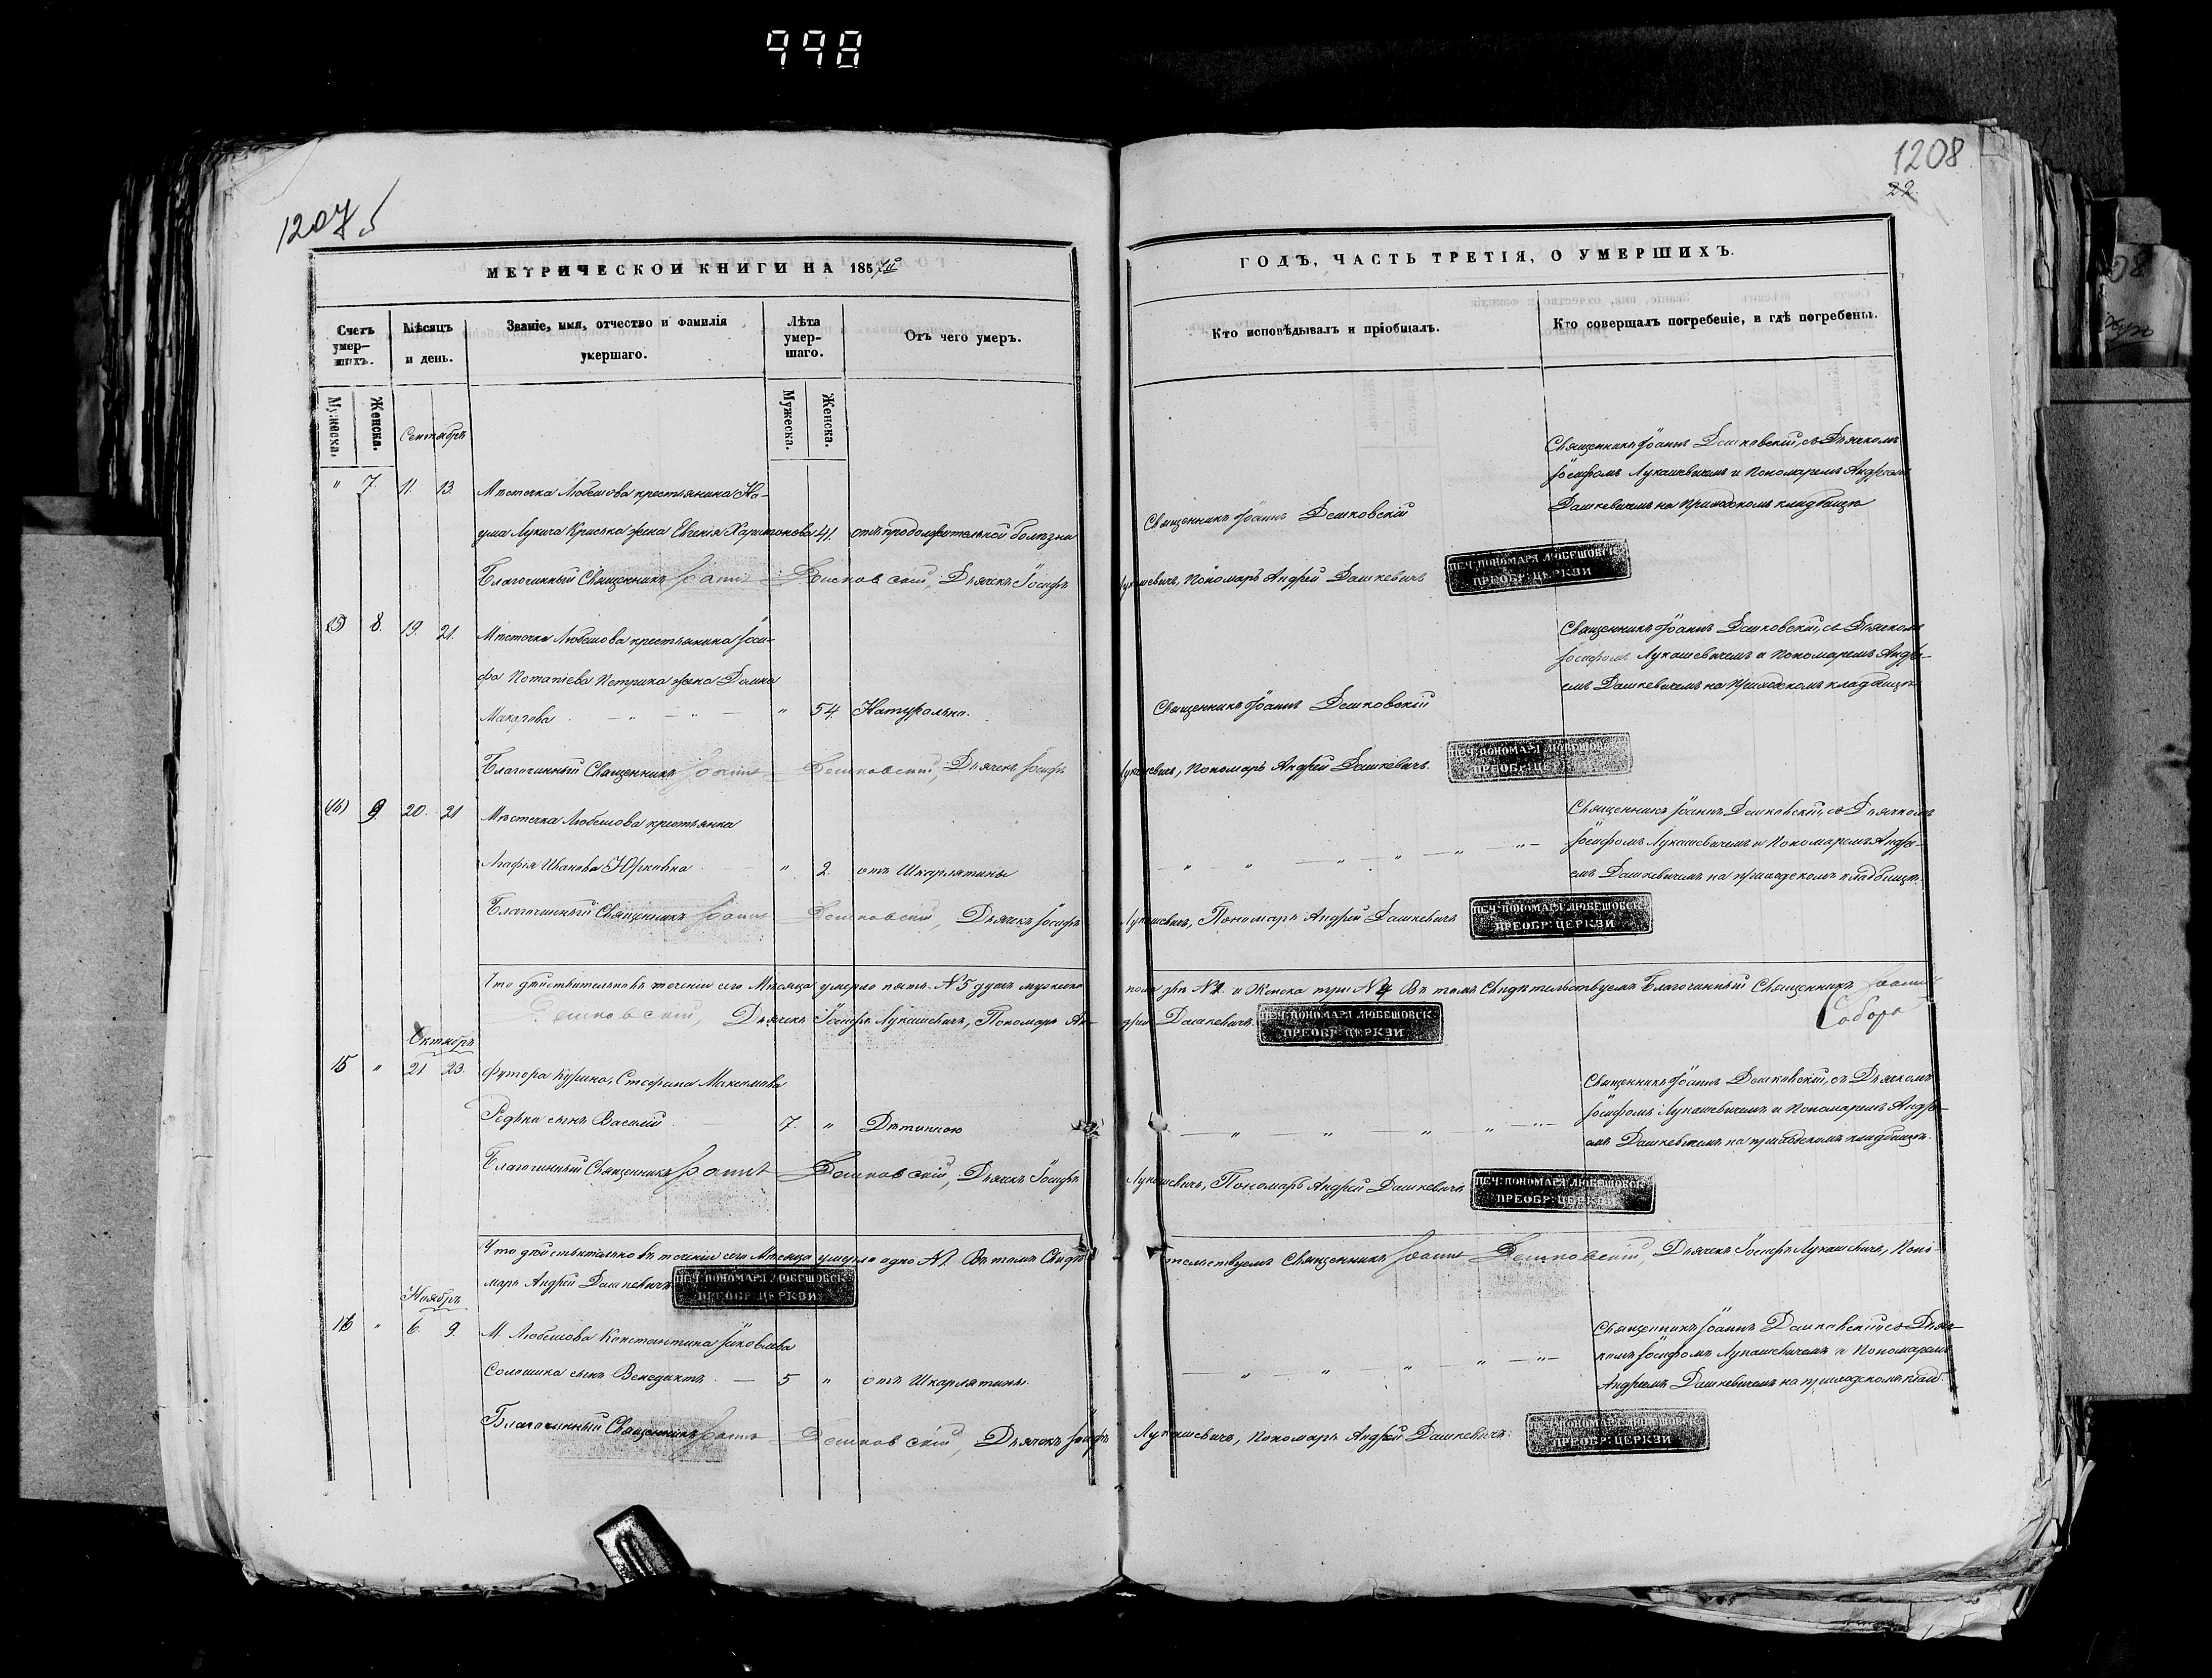 998
1207
1208
22
МЕТРИЧЕСКОЙ КНИГИ НА 1857й
ГОДЪ, ЧАСТЬ ТРЕТІЯ, О УМЕРШИХЪ.
Счетъ умер-шихъ.
Мѣсяцъ и день.
Званіе, имя, отчество и фамилія умершаго.
Лѣта умер-шаго.
Отъ чего умеръ.
Кто исповѣдывалъ и пріобщалъ.
Кто совершалъ погребеніе, и гдѣ погребены.
Мужеска.
Женска.
Мужеска.
Женска.
Сентябрь
" 7. 11. 13. Мѣстечка Любешова крестьянина На-
ума Лукича жена Евгенія Харитонова 41. отъ продолжительной болѣзни
Священникъ Іоаннъ Дешковскій
Священникъ Іоаннъ Дешковскій, съ Дьячкомъ
Іосифомъ Лукашевичемъ и Пономаремъ Андреемъ
Дашкевичемъ на приходскомъ кладбищѣ
Благочинный Священникъ Іоаннъ Дешковскій, Дьячекъ Іосифъ
Лукашевичъ, Пономарь Андрей Дашкевичъ
ПЕЧ: ПОНОМАРЯ ЛЮБЕШОВСК:
ПРЕОБР: ЦЕРКЗИ
8. 19. 21. Мѣстечка Любешова крестьянина Іоси-
фа Потапіева Петрика жена Домна
Макарова " 54. Натурально.
Священникъ Іоаннъ Дешковскій
Священникъ Іоаннъ Дешковскій, съ Дьячкомъ
Іосифомъ Лукашевичемъ и Пономаремъ Андре-
емъ Дашкевичемъ на приходскомъ кладбищѣ
Благочинный Священникъ Іоаннъ Дешковскій, Дьячекъ Іосифъ
Лукашевичъ, Пономарь Андрей Дашкевичъ.
ПЕЧ: ПОНОМАРЯ ЛЮБЕШОВСК:
ПРЕОБР: ЦЕРКЗИ
9 20. 21 Мѣстечка Любешова крестьянка
Агафія Иванова Юрковна " 2. отъ Шкарлятины
Священникъ Іоаннъ Дешковскій, съ Дьячкомъ
Іосифомъ Лукашевичемъ и Пономаремъ Андре-
емъ Дашкевичемъ на приходскомъ кладбищѣ.
Благочинный Священникъ Іоаннъ Дешковскій, Дьячекъ Іосифъ
Лукашевичъ, Пономарь Андрей Дашкевичъ
ПЕЧ: ПОНОМАРЯ ЛЮБЕШОВСК:
ПРЕОБР: ЦЕРКЗИ
Что дѣйствительно въ теченіи сего Мѣсяца умерло пять N 5 душъ мужеска
пола и Женска три въ томъ Свидѣтельствуемъ Благочинный Священникъ Іоаннъ
Дешковскій, Дьячекъ Іосифъ Лукашевичъ, Пономарь Ан-
дрей Дашкевичъ.
ПЕЧ: ПОНОМАРЯ ЛЮБЕШОВСК:
ПРЕОБР: ЦЕРКЗИ
Октябрь
15 " 21 23. Футора Курина, Стефана Максимова
сынъ Василій 7. " Дѣтинною
Священникъ Іоаннъ Дешковскій, съ Дьячкомъ
Іосифомъ Лукашевичемъ и Пономаремъ Андре-
емъ Дашкевичемъ на приходскомъ кладбищѣ.
Благочинный Священникъ Іоаннъ Дешковскій, Дьячекъ Іосифъ
Лукашевичъ, Пономарь Андрей Дашкевичъ
ПЕЧ: ПОНОМАРЯ ЛЮБЕШОВСК:
ПРЕОБР: ЦЕРКЗИ
Что дѣйствительно въ теченіи сего Мѣсяца умерло одно N1. Въ томъ Свидѣ-
тельствуемъ Священникъ Іоаннъ Дешковскій, Дьячекъ Іосифъ Лукашевичъ, Поно-
марь Андрей Дашкевичъ
ПЕЧ: ПОНОМАРЯ ЛЮБЕШОВСК:
ПРЕОБР: ЦЕРКЗИ
Ноябрь
16 " 6. 9. М. Любешова Константина Іаковлева
Соломика сынъ Венедиктъ 5 " отъ Шкарлятины.
Священникъ Іоаннъ Дешковскій съ Дьяч-
комъ Іосифомъ Лукашевичемъ и Пономаремъ
Андреемъ Дашкевичемъ на приходскомъ клад.
Благочинный Священникъ Іоаннъ Дешковскій, Дьячекъ Іосифъ
Лукашевичъ, Пономарь Андрей Дашкевичъ.
ПЕЧ: ПОНОМАРЯ ЛЮБЕШОВСК:
ПРЕОБР: ЦЕРКЗИ